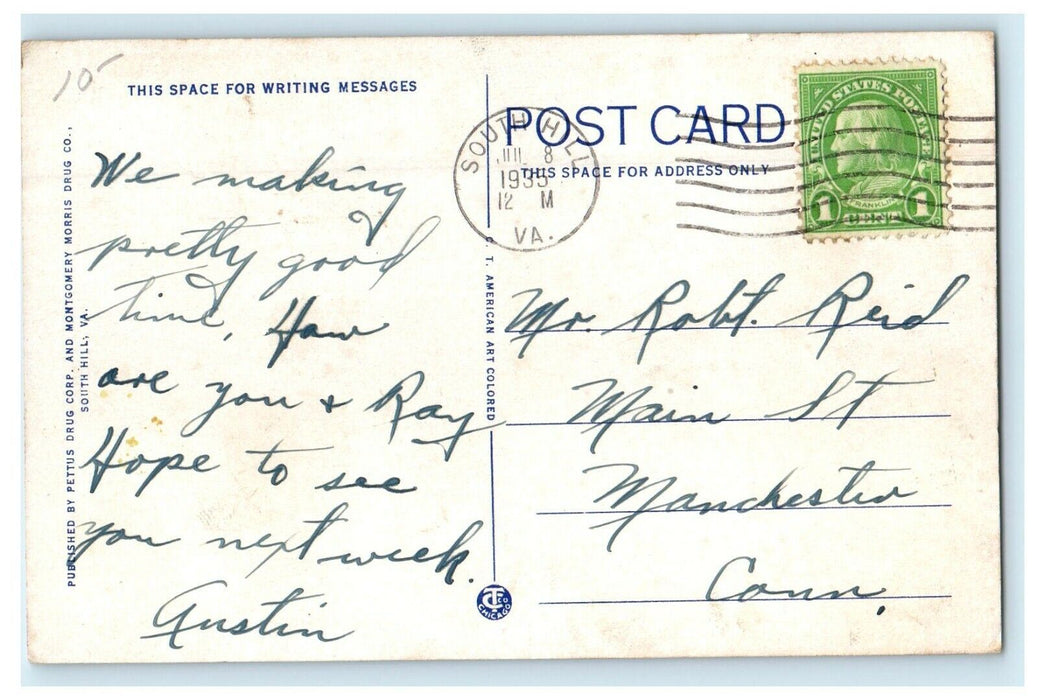 10
THIS SPACE FOR WRITING MESSAGES
POST CARD
THIS SPACE FOR ADDRESS ONLY
SOUTH HILL
JUL 8
1935
12 M
VA.
UNITED STATES POSTAGE
FRANKLIN
1 1
PUBLISHED BY PETTUS DRUG CORP. AND MONTGOMERY MORRIS DRUG CO.,
SOUTH HILL, VA.
We making
pretty good
time, How
are you + Ray
Hope to see
you next week.
Austin
C. T. AMERICAN ART COLORED
CHICAGO
Mr. Robt. Reid
Main St
Manchester
Conn.